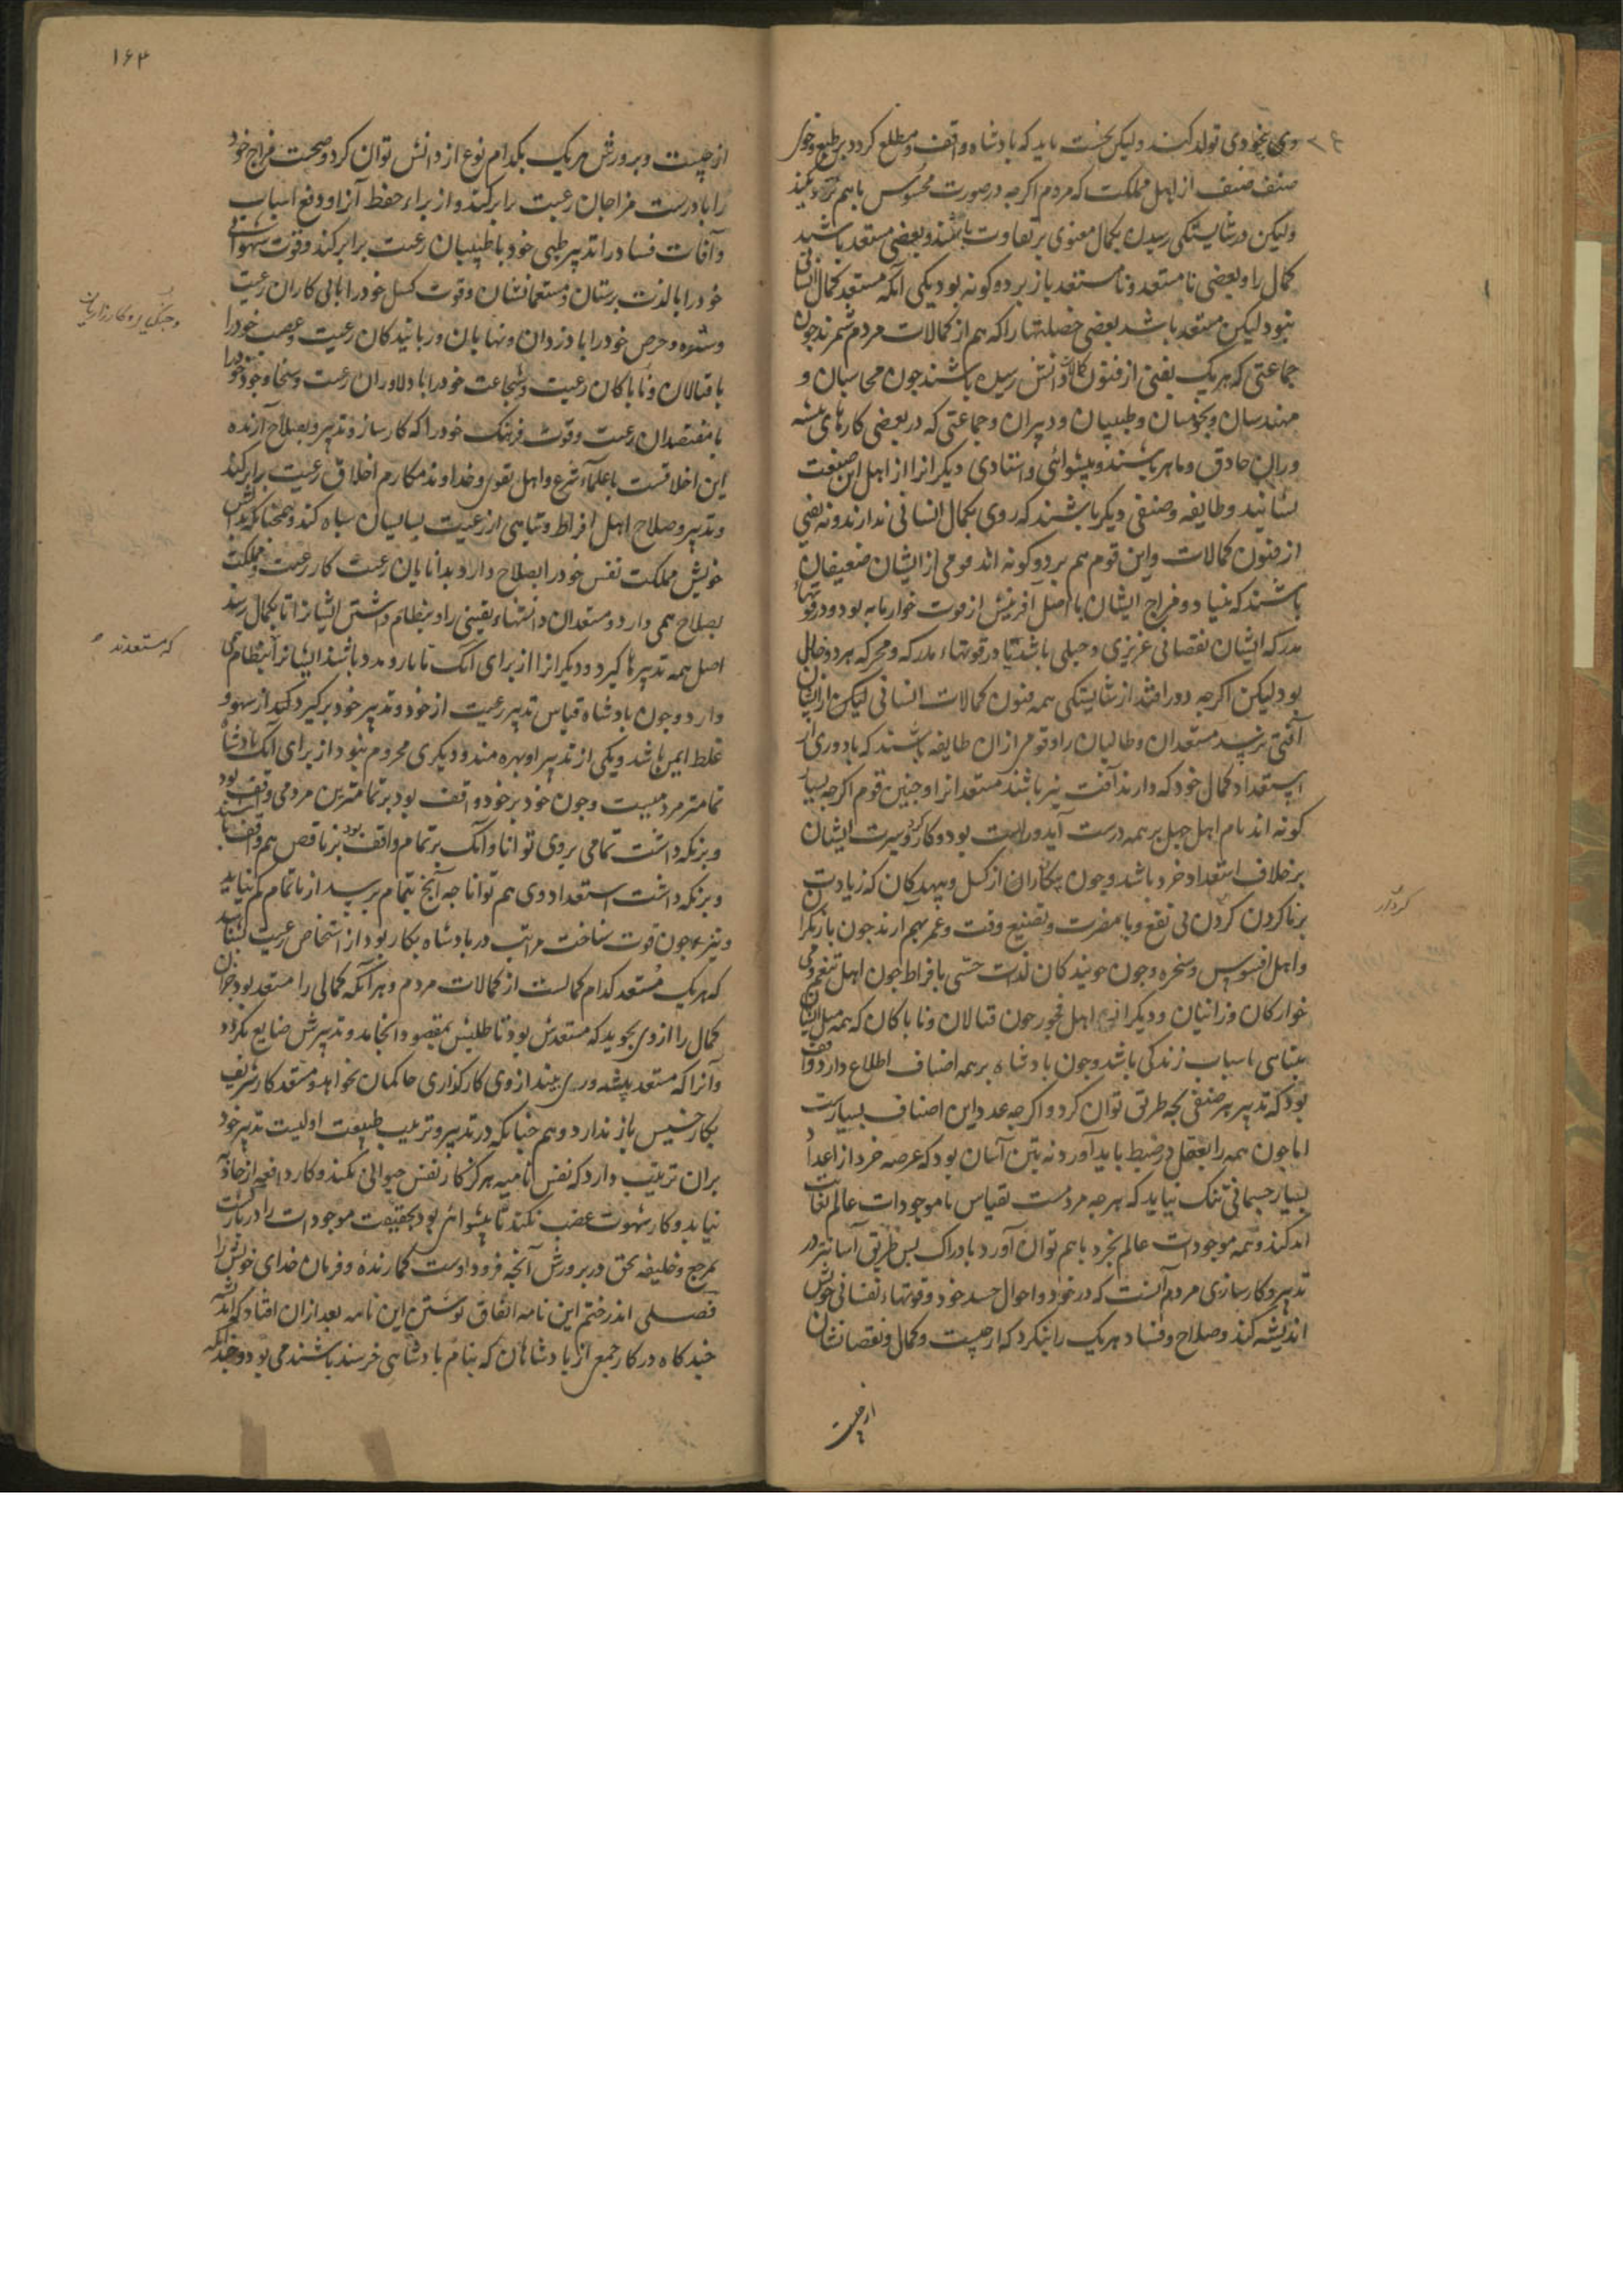 وی بخودی تولد کنند ولیکن نخست باید که بادشاه واقف و مطلع کردد بر طبع و خوی
صنف صنف از اهل مملکت که مردم اکرجه در صورت محسوس باهم نزدیکند
ولیکن در شایستکی رسیدن بکمال معنوی بر تفاوت باشند و بعضی مستعد باشند
کمال را و بعضی نامستعد و نامستعد باز بر دو کونه بود یکی آنکه مستعد کمال انسانی
نبود لیکن مستعد باشد بعضی خصلتها را که هم از کمالات مردم شمرند جون
جماعتی که هر یک بفنی از فنون کمالات و دانش رسیده باشند جون محاسبان و
مهندسان و منجمان و طبیبان و دبیران و جماعتی که در بعضی کارهای بیشه
وران حاذق و ماهر باشند و بیشوائی و استادی دیکرانرا از اهل این صنعت
بشایند و طایفه و صنفی دیکر باشند که روی بکمال انسانی ندارند و نه بفنی
از فنون کمالات و این قوم هم بر دو کونه اند قومی از ایشان ضعیفان
باشند که بنیاد و مزاج ایشان باصل آفرینش از قوت خوار مایه بود و در قوتهاء
مدرکه ایشان نقصانی غریزی و جبلی باشد یا در قوتهاء مدرکه و محرکه هر دو خلل
بود لیکن اکرجه دور افتند از شایستکی همه فنون کمالات انسانی لیکن از ایشان
آفتی نرسد مستعدان و طالبان را و قومی از ان طایفه باشند که با دوری از
استعداد کمال خود که دارند آفت نیز باشند مستعدانرا و جنین قوم اکرجه بسیار
کونه اند نام اهل جهل بر همه درست آید و راست بود و کار و سیرت ایشان
بر خلاف استعداد خرد باشد و جون بیکاران از کسل و بیهدکان که زیادت
بر ناکردن کردن بی نفع و با مضرت و تضییع وقت و عمر بهم آرند جون بازیکران
و اهل افسوس و سخره و جون جویندکان لذت حسی بافراط جون اهل تنعم و می
خوارکان و زانیان و دیکر انواع اهل فجور جون قتالان و ناباکان که همه میل ایشان
بتناهی باسباب زندکی باشد و جون بادشاه بر همه اصناف اطلاع دارد و واقف
بود که تدبیر هر صنفی بجه طریق توان کرد و اکرجه عدد این اصناف بسیارست
اما جون همه را بعقل در ضبط باید آورد نه بتن آسان بود که عرصه خرد از اعداد
بسیار جسمانی تنک نیاید که هرجه مردمست بقیاس با موجودات عالم بغایت
اندکند و همه موجودات عالم بخرد باهم توان آورد بادراک بس طریق آسانتر در
تدبیر و کارسازی مردم آنست که در خود و احوال جسد خود و قوتهاء نفسانی خویش
اندیشه کند و صلاح و فساد هر یک را بنکرد که از جیست و کمال و نقصانشان
کردار
از جیست
۱۶۳
از جیست و برورش هر یک بکدام نوع از دانش توان کرد و صحت مزاج خود
را با درست مزاجان رعیت برابر کند و از براء حفظ آنرا و دفع اسباب
و آفات فساد را تدبیر طبی خود با طبیبان رعیت برابر کند و قوت شهوانی
خود را با لذت برستان و مستعمانشان و قوت کسل خود را با بی کاران رعیت
و شره و حرص خود را با دزدان و نهابان و ربایندکان رعیت و غضب خود را
با قتالان و ناباکان رعیت و شجاعت خود را با دلاوران رعیت و سخا و جود خود را
با مقتصدان رعیت و قوت فرهنک خود را که کارساز و تدبیر و بصلاح آرنده
این اخلاقست با علماء شرع و اهل تقوی و خداوند مکارم اخلاق رعیت برابر کند
و تدبیر و صلاح اهل افراط و تباهی از رعیت بسایسان سباه کند و همجنانکه بدانش
خویش مملکت نفس خود را بصلاح دارد بدانایان رعیت کار رعیت و مملکت
بصلاح همی دارد و مستعدان دانشهاء یقینی را و بنظام داشتن ایشانرا تا بکمال رسند
اصل همه تدبیرها کیرد و دیکرانرا از برای آنک تا یار و مدد باشند ایشانرا بنظام می
دارد و جون بادشاه قیاس تدبیر رعیت از خود و تدبیر خود برکیرد کند از سهو و
غلط ایمن باشد و یکی از تدبیر او بهره مند و دیکری محروم نبود از برای آنک بادشاه
تمامتر مردمیست و جون خود بر خود واقف بود بر تمامترین مردمی واقف بود
و بر نکه داشت تمامی بر وی توانا و آنک بر تمام واقف بود بر ناقص هم واقف باشد
و بر نکه داشت استعداد وی هم توانا جه آنج بتمام برسد از ناتمام کم نیاید
و نیز جون قوت شناخت مراتب در بادشاه بکار بود از اشخاص رعیت بشناسد
که هر یک مستعد کدام کمالست از کمالات مردم و هر آنکه کمالی را مستعد بود جز آن
کمال را از وی بجوید که مستعدش بود تا طلبش بمقصود انجامد و تدبیرش ضایع نکردد
و آنرا که مستعد بیشه وری بیند از وی کارکذاری حاکمان نخواهد و مستعد کار شریف
بکار خسیس باز ندارد و هم جنانکه در تدبیر و ترتیب طبیعت اولیست تدبیر خود
بران ترتیب دارد که نفس نامیه هرکز کار نفس حیوانی نکند و کار دافعه از جاذبه
نیاید و کار شهوت غضب نکند تا بیشوائی بود بحقیقت موجودات را در بازکشت
بمرجع و خلیفه بحق در برورش آنجه فرود اوست کمارنده و فرمان خدای خویش را
فصلی اندر ختم این نامه اتفاق نوشتن این نامه بعد از ان افتاد که اندیشه
جندکاه در کار جمعی از بادشاهان که بنام بادشاهی خرسند باشند می بود و جندانکه
و جنک آوران و کارزاریان
که مستعدند